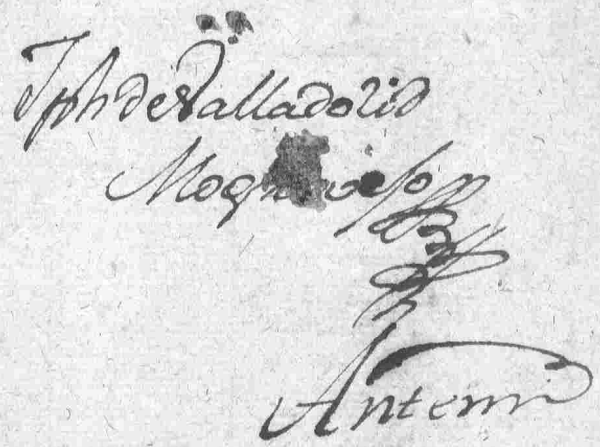 Jph de Valladolid
Mogrovejo
Ante mi